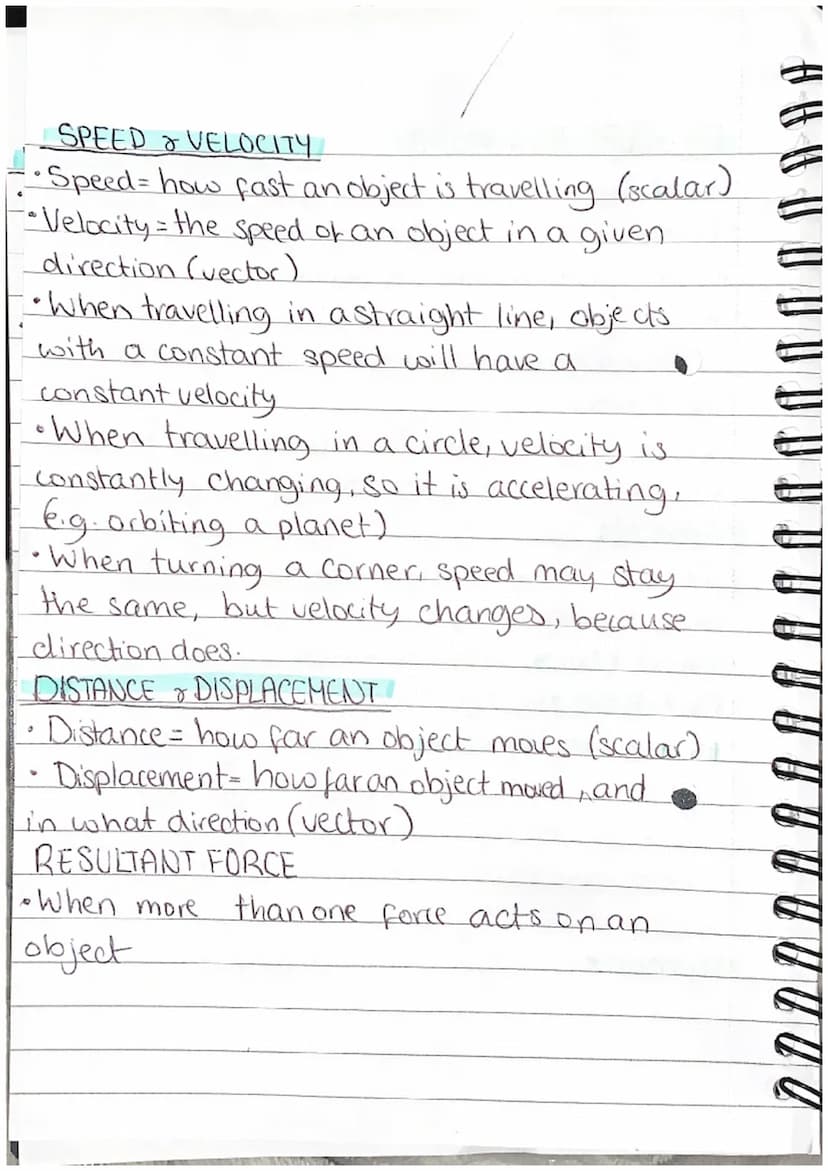 SPEED & VELOCITY
• Speed = how fast an object is travelling (scalar)
• Velocity = the speed of an object in a given
direction (vector)
• When travelling in a straight line, objects
with a constant speed will have a
constant velocity
• When travelling in a circle, velocity is
constantly changing, so it is accelerating.
(e.g. orbiting a planet)
• When turning a corner, speed may stay
the same, but velocity changes, because
direction does.
DISTANCE & DISPLACEMENT
• Distance = how far an object moves (scalar)
• Displacement = how far an object moved, and
in what direction (vector)
RESULTANT FORCE
• When more than one force acts on an
object